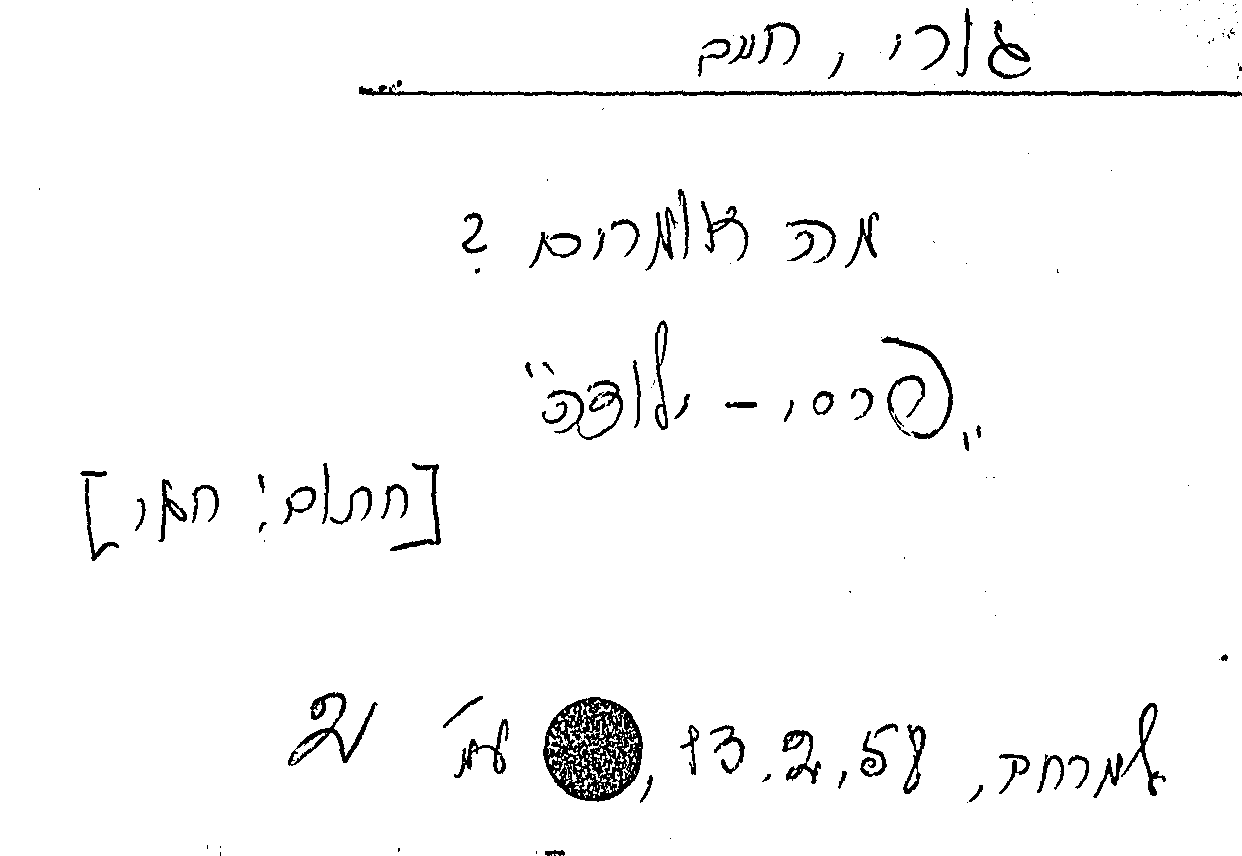 גורי, חיים
מה אומרים ?
"פרסי - ילודה"
[חתום: חגי]
למרחב, 13.2.58, עמ' 2